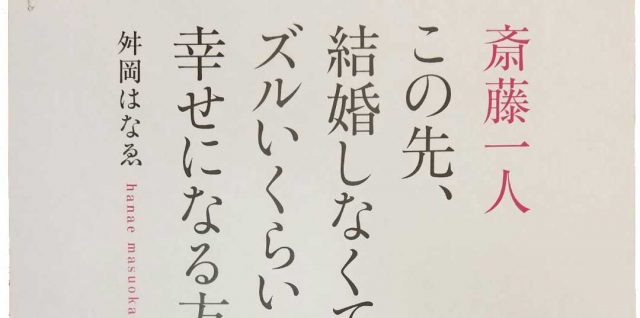 斎藤一人
この先、
結婚しなくて
ズルいくらい
幸せになる
舛岡はなゑ
hanae masuoka